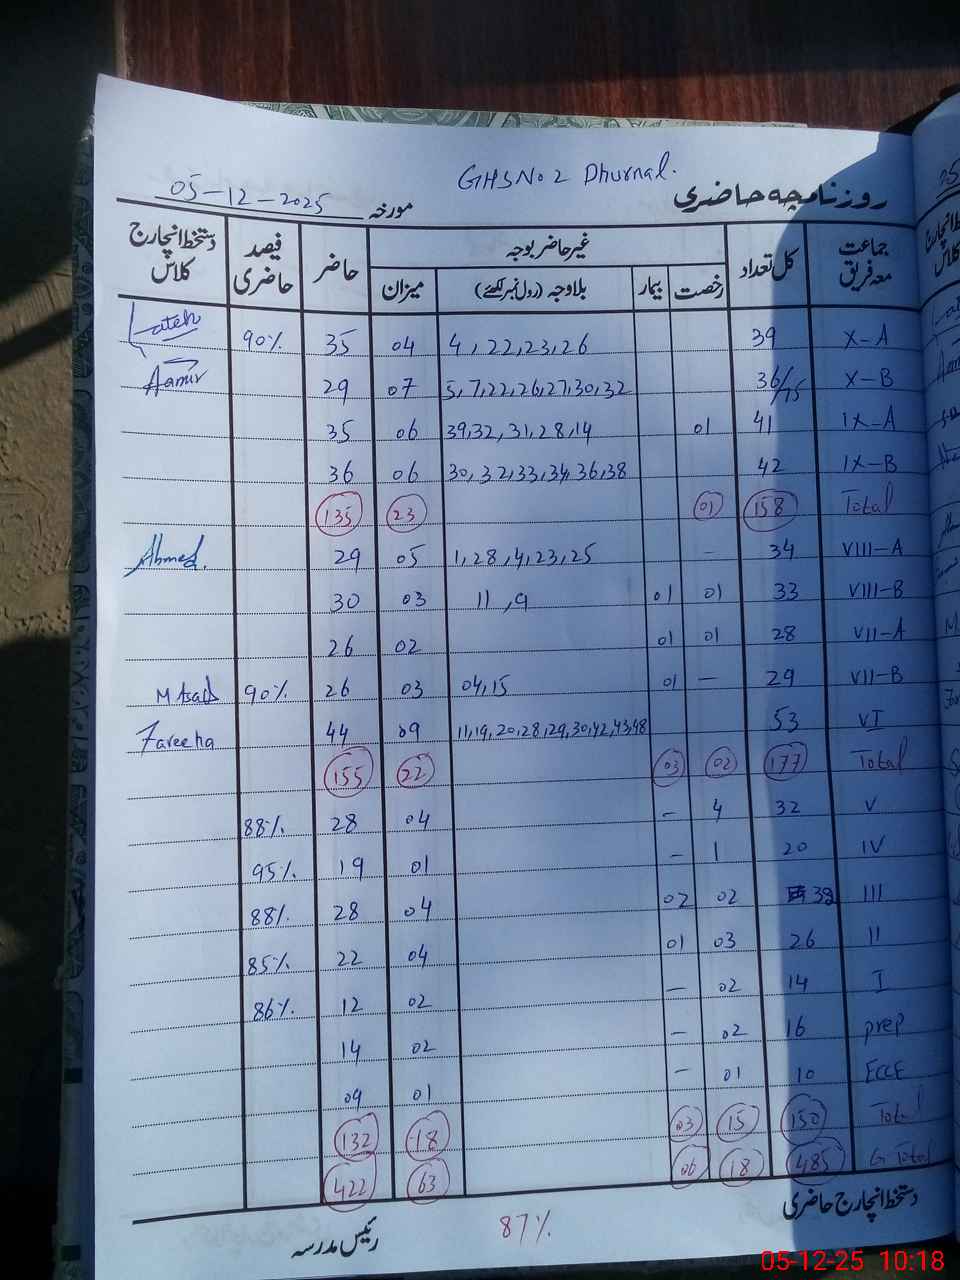 GHS No 2 Dhurnal.
روزنامچہ حاضری مورخہ 05-12-2025
جماعت معہ فریق کل تعداد غیر حاضر بوجہ حاضر فیصد حاضری دستخط انچارج کلاس
رخصت بیمار بلاوجہ (رول نمبر لکھئے) میزان
X-A 39 4, 22, 23, 26 04 35 90%
X-B 36/15 5, 7, 22, 26, 27, 30, 32 07 29 Aamir
IX-A 41 01 39, 32, 31, 28, 14 06 35
IX-B 42 30, 32, 33, 34, 36, 38 06 36
Total 158 01 23 135
VIII-A 34 - 1, 28, 4, 23, 25 05 29 Ahmed.
VIII-B 33 01 01 11, 9 03 30
VII-A 28 01 01 02 26
VII-B 29 - 01 04, 15 03 26 90% M Asad
VI 53 11, 19, 20, 28, 29, 30, 42, 43, 48 09 44 Fareeha
Total 177 02 03 22 155
V 32 4 - 04 28 88%
IV 20 1 - 01 19 95%
III 32 02 02 04 28 88%
II 26 03 01 04 22 85%
I 14 02 - 02 12 86%
prep 16 02 - 02 14
ECCE 10 01 - 01 09
Total 150 15 03 18 132
G Total 485 18 06 63 422
دستخط انچارج حاضری 87% رئیس مدرسہ
05-12-25 10:18